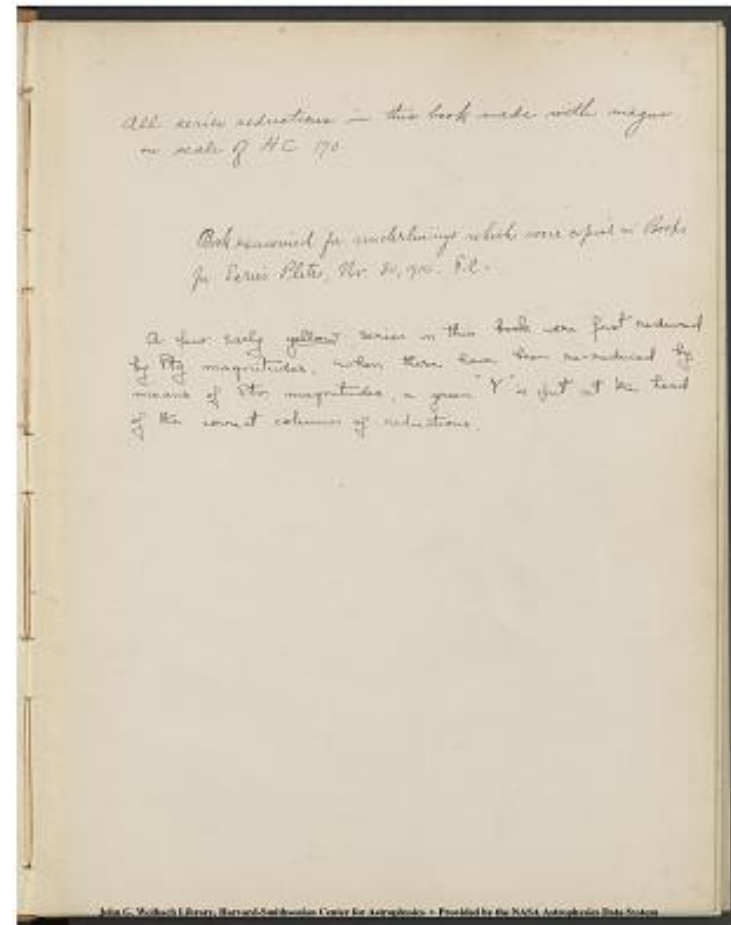 All series reductions in this book made with magns.
on scale of HC 170
Book examined for underlinings which were copied in Books
for Series Plates, Nov. 30, 1910.
A few early yellow series in this book were first reduced
by Ptg magnitudes, when these have been re-reduced by
means of magnitudes, a green "Y" is put at the head
of the correct columns of reductions.
John G. Wolbach Library, Harvard-Smithsonian Center for Astrophysics • Provided by the NASA Astrophysics Data System